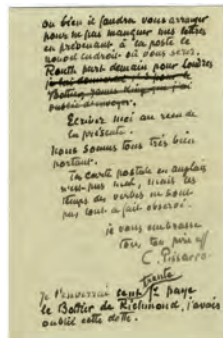 ou bien il faudra vous arranger
pour ne pas manquer mes lettres
en prévenant à la poste le
nouvel endroit où vous serez.
Routh part demain pour Londres
je lui
Bottier James King que j'ai
oublié d'envoyer.
Ecrivez moi au reçu de
la présente.
Nous sommes tous très bien
portant.
Ta carte postale en anglais
n'est pas mal, mais les
temps des verbes ne sont
pas tout à fait observé.
je vous embrasse
Ton père aff
C. Pissarro
trente
Je t'enverrai cent f. paye
le Bottier de Richmond, j'avais
oublié cette dette.